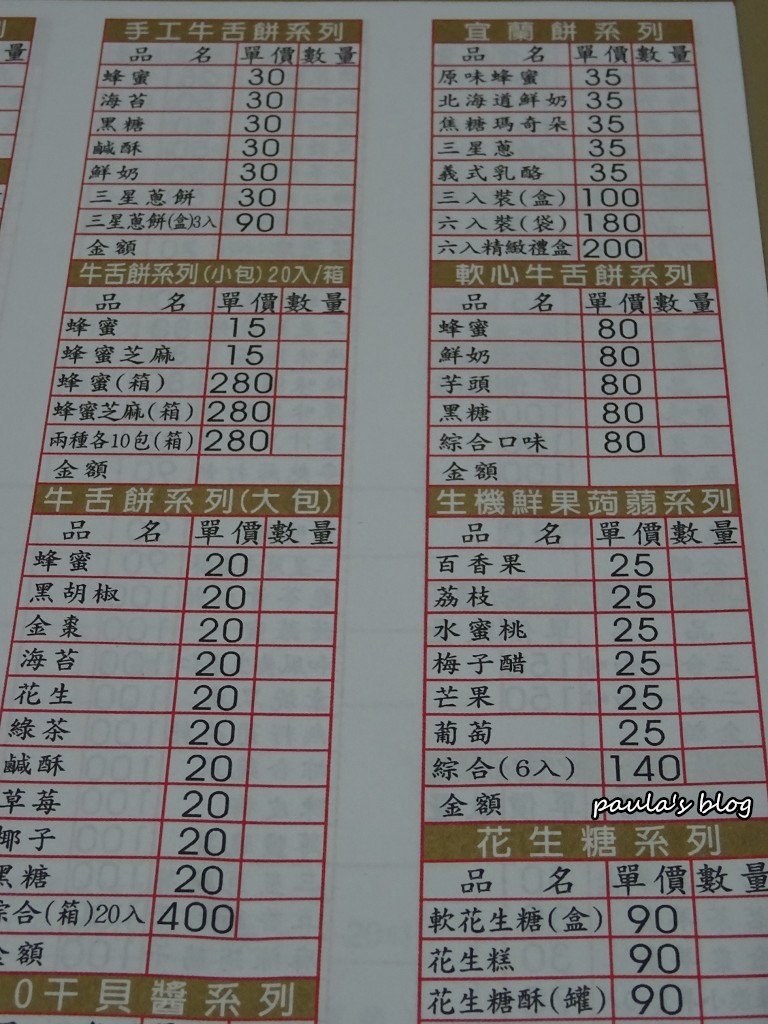 列
量
手工牛舌餅系列
品 名 單價 數量
蜂蜜 30
海苔 30
黑糖 30
鹹酥 30
鮮奶 30
三星蔥餅 30
三星蔥餅(盒)3入 90
金額
牛舌餅系列(小包)20入/箱
品 名 單價 數量
蜂蜜 15
蜂蜜芝麻 15
蜂蜜(箱) 280
蜂蜜芝麻(箱) 280
兩種各10包(箱) 280
金額
牛舌餅系列(大包)
品 名 單價 數量
蜂蜜 20
黑胡椒 20
金棗 20
海苔 20
花生 20
綠茶 20
鹹酥 20
草莓 20
椰子 20
黑糖 20
綜合(箱)20入 400
金額
O干貝醬系列
宜蘭餅系列
品 名 單價 數量
原味蜂蜜 35
北海道鮮奶 35
焦糖瑪奇朵 35
三星蔥 35
義式乳酪 35
三入裝(盒) 100
六入裝(袋) 180
六入精緻禮盒 200
軟心牛舌餅系列
品 名 單價 數量
蜂蜜 80
鮮奶 80
芋頭 80
黑糖 80
綜合口味 80
金額
生機鮮果蒟蒻系列
品 名 單價 數量
百香果 25
荔枝 25
水蜜桃 25
梅子醋 25
芒果 25
葡萄 25
綜合(6入) 140
金額
paula's blog
花生糖系列
品 名 單價 數量
軟花生糖(盒) 90
花生糕 90
花生糖酥(罐) 90